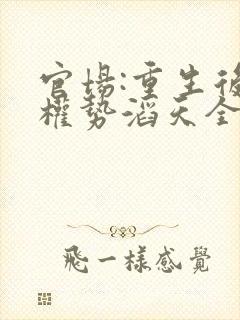 官場:重生後
權势滔天全
飛一樣感覺